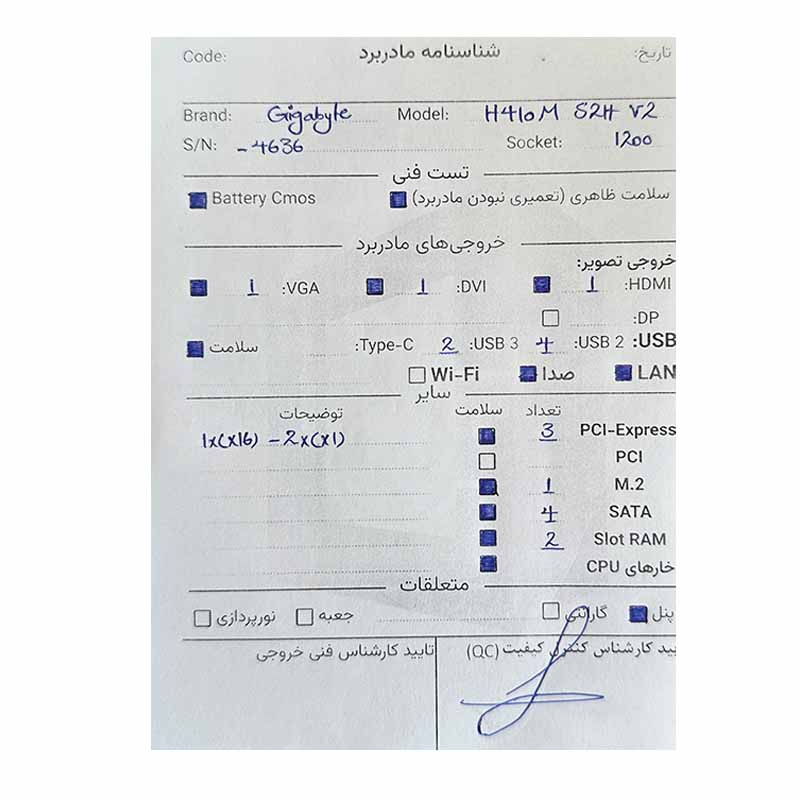 تاریخ: شناسنامه مادربرد Code:
Brand: Gigabyte Model: H410M S2H V2
S/N: -4636 Socket: 1200
تست فنی
سلامت ظاهری (تعمیری نبودن مادربرد) Battery Cmos
خروجی‌های مادربرد
خروجی تصویر:
HDMI: 1 DVI: 1 VGA: 1
DP:
USB: USB 2: 4 USB 3: 2 Type-C: سلامت
LAN صدا Wi-Fi
سایر
تعداد سلامت توضیحات
PCI-Express 3 1x(x16) - 2x(x1)
PCI
M.2 1
SATA 4
Slot RAM 2
خارهای CPU
متعلقات
پنل گارانتی جعبه نورپردازی
یید کارشناس کنترل کیفیت (QC) تایید کارشناس فنی خروجی